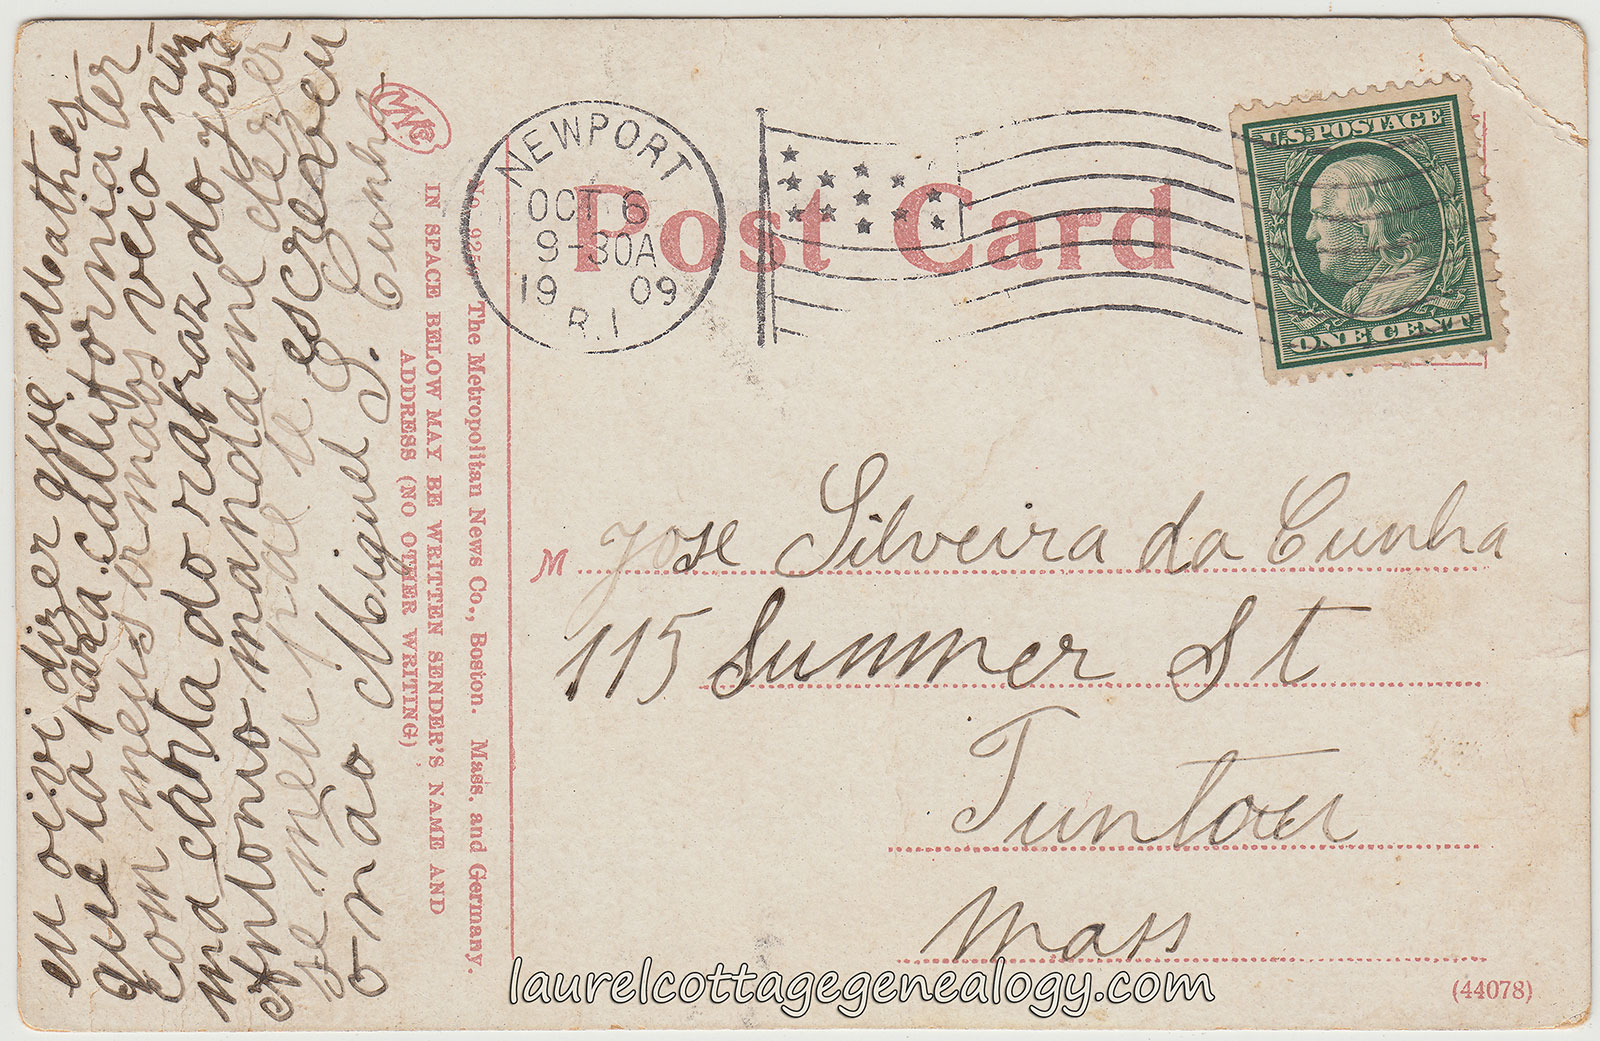 eu oivi dizer que Mathes
que ia para Callifornia ter
com meus ermaos veio num
ma carta do rabraz do jose
Antonio mandame dezer
se meu pae te escreveu
o não Miguel S. Cunha
MNC
No. 925. The Metropolitan News Co., Boston. Mass. and Germany.
IN SPACE BELOW MAY BE WRITTEN SENDER'S NAME AND
ADDRESS (NO OTHER WRITING)
Post Card
NEWPORT
OCT 6
9-30A
19 09
R.I
U.S. POSTAGE
ONE CENT
M Jose Silveira da Cunha
115 Summer St
Tuntou
Mass
laurelcottagegenealogy.com
(44078)